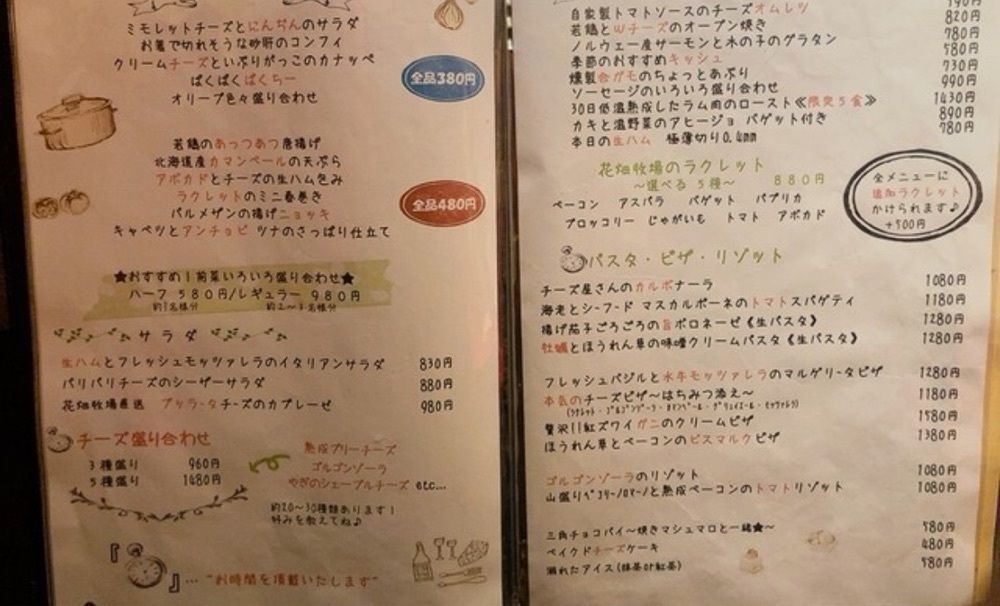 ミモレットチーズとにんぢんのサラダ
お箸で切れそうな砂肝のコンフィ
クリームチーズといぶりがっこのカナッペ
ぱくぱくぱくちー
オリーブ色々盛り合わせ
全品380円
若鶏のあっつあつ唐揚げ
北海道産カマンベールの天ぷら
アボカドとチーズの生ハム包み
ラクレットのミニ春巻き
パルメザンの揚げニョッキ
キャベツとアンチョビ ツナのさっぱり仕立て
全品480円
★おすすめ!前菜いろいろ盛り合わせ★
ハーフ 580円/レギュラー 980円
約1名様分 約2~3名様分
サラダ
生ハムとフレッシュモッツァレラのイタリアンサラダ 830円
パリパリチーズのシーザーサラダ 880円
花畑牧場直送 ブッラータチーズのカプレーゼ 980円
チーズ盛り合わせ
3種盛り 960円
5種盛り 1480円
熟成ブリーチーズ
ゴルゴンゾーラ
やぎのシェーブルチーズ etc...
約20~30種類あります!
好みを教えてね♪
『 』... "お時間を頂戴いたします"
自家製トマトソースのチーズオムレツ
若鶏とWチーズのオーブン焼き 820円
ノルウェー産サーモンと木の子のグラタン 780円
季節のおすすめキッシュ 580円
燻製合ガモのちょっとあぶり 730円
ソーセージのいろいろ盛り合わせ 990円
30日低温熟成したラム肉のロースト≪限定5食≫ 1430円
カキと温野菜のアヒージョ バゲット付き 890円
本日の生ハム 極薄切り0.4mm 780円
花畑牧場のラクレット
~選べる 5種~ 880円
ベーコン アスパラ バゲット パプリカ
ブロッコリー じゃがいも トマト アボカド
全メニューに
追加ラクレット
かけられます♪
+500円
パスタ・ピザ・リゾット
チーズ屋さんのカルボナーラ 1080円
海老とシーフード マスカルポーネのトマトスパゲティ 1180円
揚げ茄子ごろごろの旨ボロネーゼ《生パスタ》 1280円
牡蠣とほうれん草の味噌クリームパスタ《生パスタ》 1280円
フレッシュバジルと水牛モッツァレラのマルゲリータピザ 1280円
本気のチーズピザ~はちみつ添え~ 1180円
(ラクレット・ゴルゴンゾーラ・カマンベール・グリュイエール・モッツァレラ)
贅沢!!紅ズワイガニのクリームピザ 1580円
ほうれん草とベーコンのビスマルクピザ 1380円
ゴルゴンゾーラのリゾット 1080円
山盛りペコリーノロマーノと熟成ベーコンのトマトリゾット 1080円
三角チョコパイ~焼きマシュマロと一緒★~ 580円
ベイクドチーズケーキ 480円
溺れたアイス(抹茶or紅茶) 580円